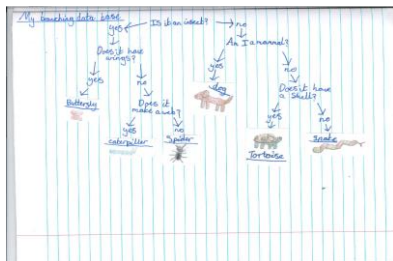 My branching data base
Is it an insect?
yes
no
Does it have
wings?
Am I a mammal?
yes
no
yes
no
Does it
make a web?
Does it have
a shell?
Butterfly
dog
yes
no
yes
no
caterpillar
Spider
Tortoise
Snake